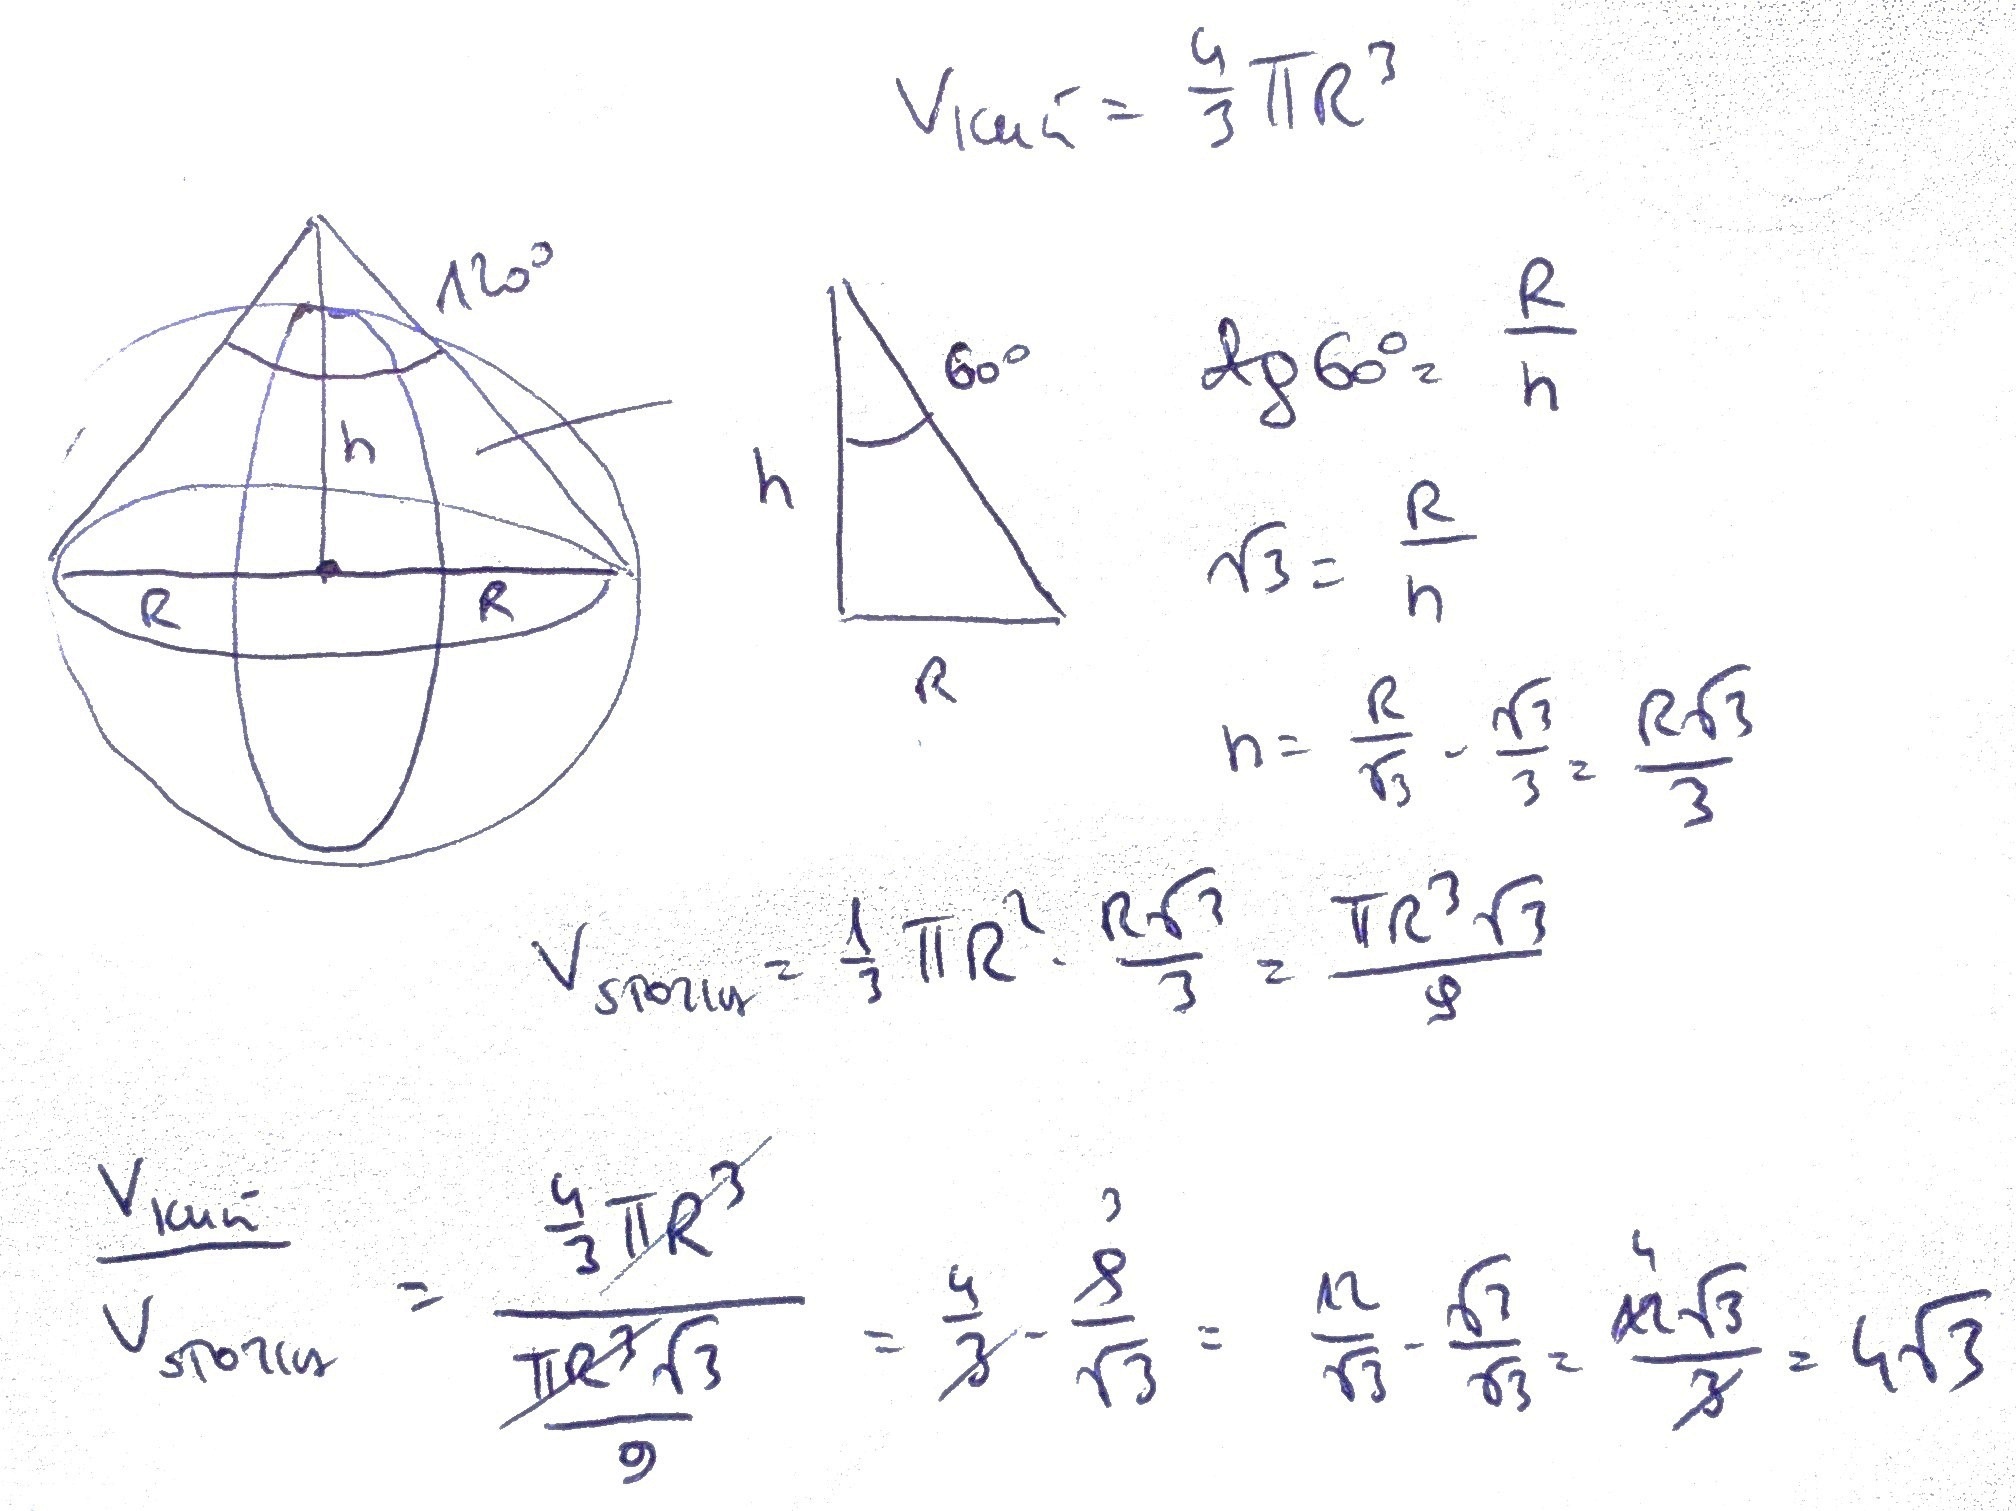 V kuli = 4/3 πR³
120°
h
R R
60°
h
R
tg 60° = R/h
√3 = R/h
h = R/√3 · √3/3 = R√3/3
V stożka = 1/3 πR² · R√3/3 = πR³√3/9
V kuli / V stożka = (4/3 πR³) / (πR³√3/9) = 4/3 · 9/√3 = 12/√3 · √3/√3 = 12√3/3 = 4√3
3
4